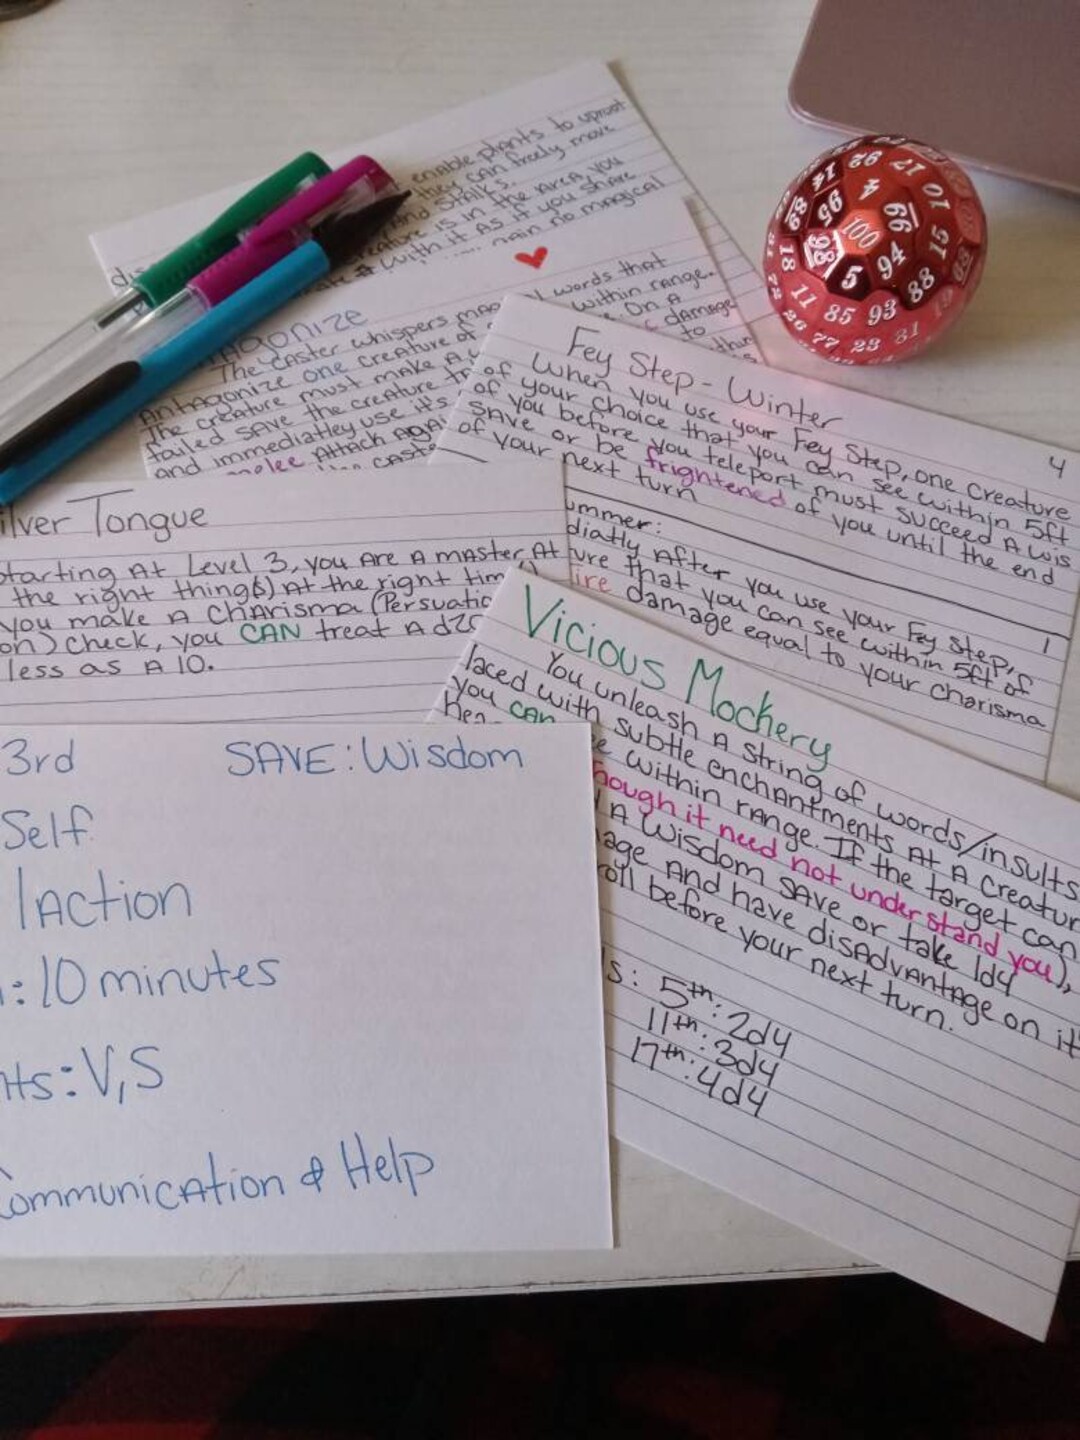 enable plants to uproot
they can freely move
and stalks.
creature is in the area, you
with it as if you share
no magical
words that
The caster whispers within range.
Antagonize one creature of On a
The creature must make a damage
failed save the creature to
and immediatley use it's
melee attack
Fey Step - Winter
When you use your Fey Step, one creature
of your choice that you can see within 5ft
of you before you teleport must succeed a wis
save or be frightened of you until the end
of your next turn
4
ummer:
diatly after you use your Fey Step,
ure that you can see within 5ft of
ire damage equal to your charisma
1
ilver Tongue
Starting at Level 3, you are a master at
the right thing(s) at the right time
you make a Charisma (Persuatio
on) check, you CAN treat a d20
less as a 10.
Vicious Mockery
You unleash a string of words/insults
laced with subtle enchantments at a creatur
you can within range. If the target can
hea hough it need not understand you),
a Wisdom save or take 1d4
age and have disadvantage on it
roll before your next turn.
ls: 5th: 2d4
11th: 3d4
17th: 4d4
3rd SAVE: Wisdom
Self
1 Action
: 10 minutes
nts: V, S
Communication & Help
92 17
14 4 10
89 95 99
100 15
98 94 69
18 5 88
11 85 93 31
26 77 23